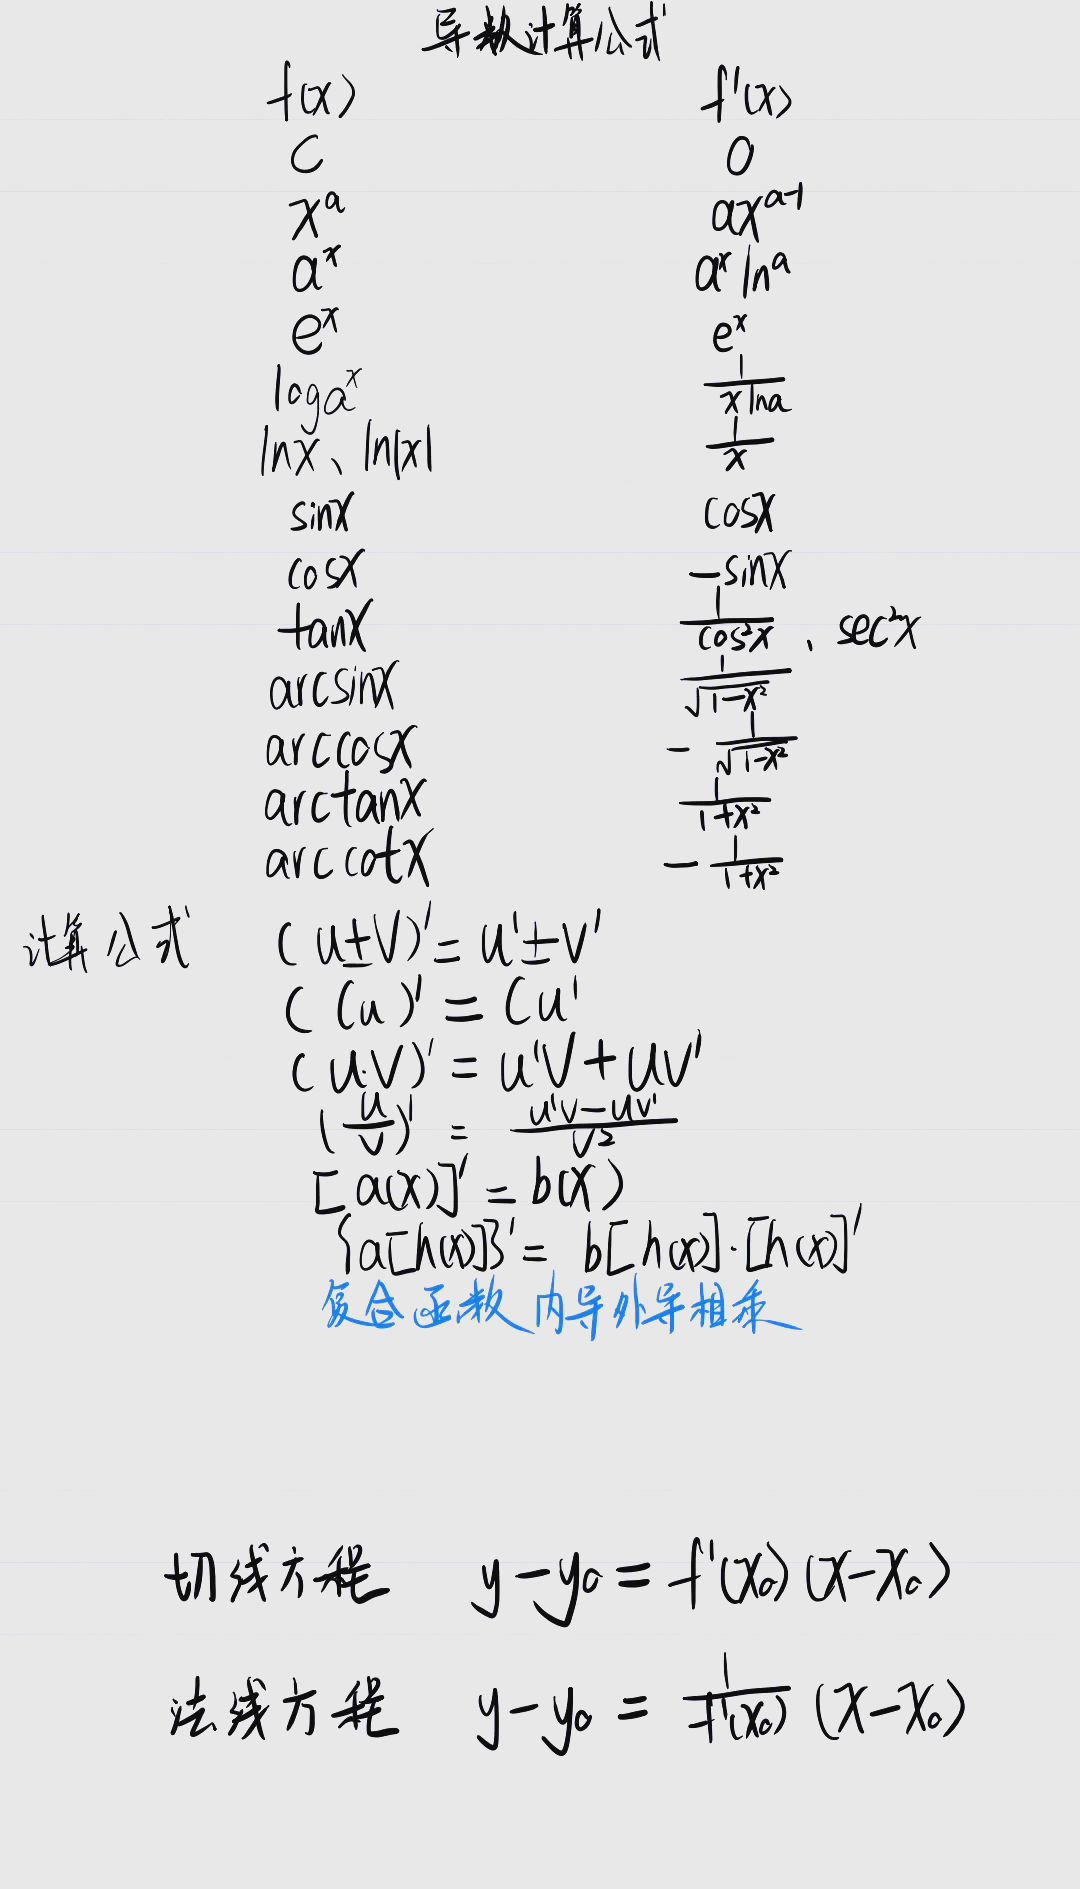 导数计算公式
f(x) f'(x)
C 0
x^a ax^{a-1}
a^x a^x ln^a
e^x e^x
log a^x \frac{1}{x lna}
lnx、ln|x| \frac{1}{x}
sinx cosx
cosx -sinx
tanx \frac{1}{cos²x}、sec²x
arcsinx \frac{1}{\sqrt{1-x²}}
arccosx -\frac{1}{\sqrt{1-x²}}
arctanx \frac{1}{1+x²}
arccotx -\frac{1}{1+x²}
计算公式 (u±v)' = u'±v'
(Cu)' = Cu'
(u·v)' = u'v+uv'
(\frac{u}{v})' = \frac{u'v-uv'}{v²}
[a(x)]' = b(x)
{a[h(x)]}' = b[h(x)]·[h(x)]'
复合函数内导外导相乘
切线方程 y-y₀ = f'(x₀)(x-x₀)
法线方程 y-y₀ = \frac{1}{f'(x₀)}(x-x₀)